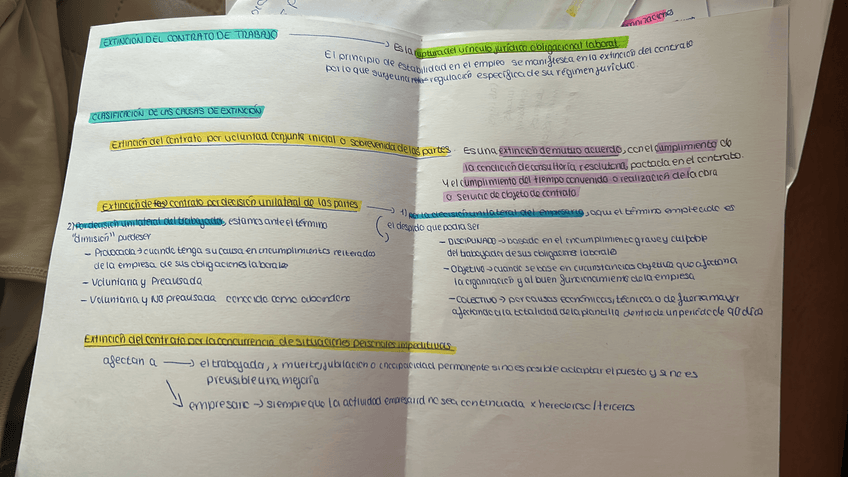 EXTINCIÓN DEL CONTRATO DE TRABAJO → Es la ruptura del vínculo jurídico obligacional laboral.
El principio de estabilidad en el empleo se manifiesta en la extinción del contrato
por lo que surge una regulación específica de su régimen jurídico.
CLASIFICACIÓN DE LAS CAUSAS DE EXTINCIÓN
Extinción del contrato por voluntad conjunta inicial o sobrevenida de las partes. Es una extinción de mutuo acuerdo, con el cumplimiento de
la condición de consultoría resolutoria, pactada en el contrato.
Y el cumplimiento del tiempo convenido o realización de la obra
o servicio de objeto de contrato
Extinción de contrato por decisión unilateral de las partes → 1) por la decisión unilateral del empresario, aquí el término empleado es
el despido que podrá ser
- DISCIPLINADO → basado en el incumplimiento grave y culpable
del trabajador de sus obligaciones laborales
- OBJETIVO → cuando se base en circunstancias objetivas que afectan a
la organización y al buen funcionamiento de la empresa
- COLECTIVO → por causas económicas, técnicas o de fuerza mayor
afectando a la totalidad de la plantilla dentro de un periodo de 90 días
2) Por decisión unilateral del trabajador, estamos ante el término
"dimisión" puede ser
- Provocada → cuando tenga su causa en incumplimientos reiterados
de la empresa de sus obligaciones laborales
- Voluntaria y Preausada
- Voluntaria y NO preausada conocido como abandono
Extinción del contrato por la concurrencia de situaciones personales impeditivas
afectan a → el trabajador, x muerte, jubilación o incapacidad permanente si no es posible adaptar el puesto y si no es
previsible una mejoría
empresario → siempre que la actividad empresarial no sea continuada x herederos/terceros